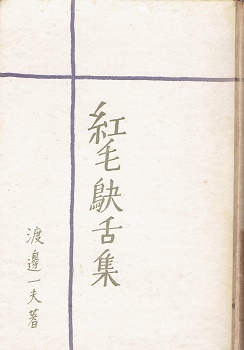 紅毛鴃舌集
渡邊一夫著